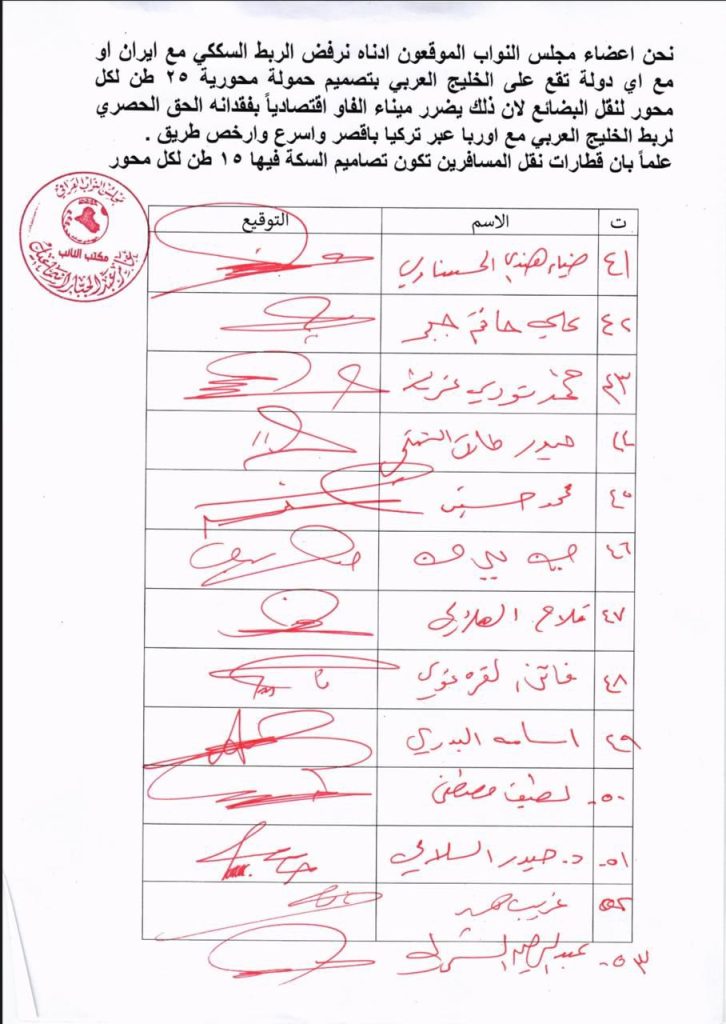 نحن اعضاء مجلس النواب الموقعون ادناه نرفض الربط السككي مع ايران او
مع اي دولة تقع على الخليج العربي بتصميم حمولة محورية ٢٥ طن لكل
محور لنقل البضائع لان ذلك يضرر ميناء الفاو اقتصادياً بفقدانه الحق الحصري
لربط الخليج العربي مع اوربا عبر تركيا باقصر واسرع وارخص طريق .
علماً بان قطارات نقل المسافرين تكون تصاميم السكة فيها ١٥ طن لكل محور
مجلس النواب العراقي
مكتب النائب
عامر عبد الجبار اسماعيل
ت الاسم التوقيع
٤١ ضياء هندي الحسناوي
٤٢ علي جبر
٤٣ محمد نوري عزيز
٤٤ حيدر طارق
٤٥ محمد حسين
٤٦
٤٧ فلاح الهلالي
٤٨ فاتن القره غولي
٤٩ اسامه البدري
٥٠ لطيف مصطفى
٥١ د. حيدر السلامي
٥٢ غريب
٥٣ عبد